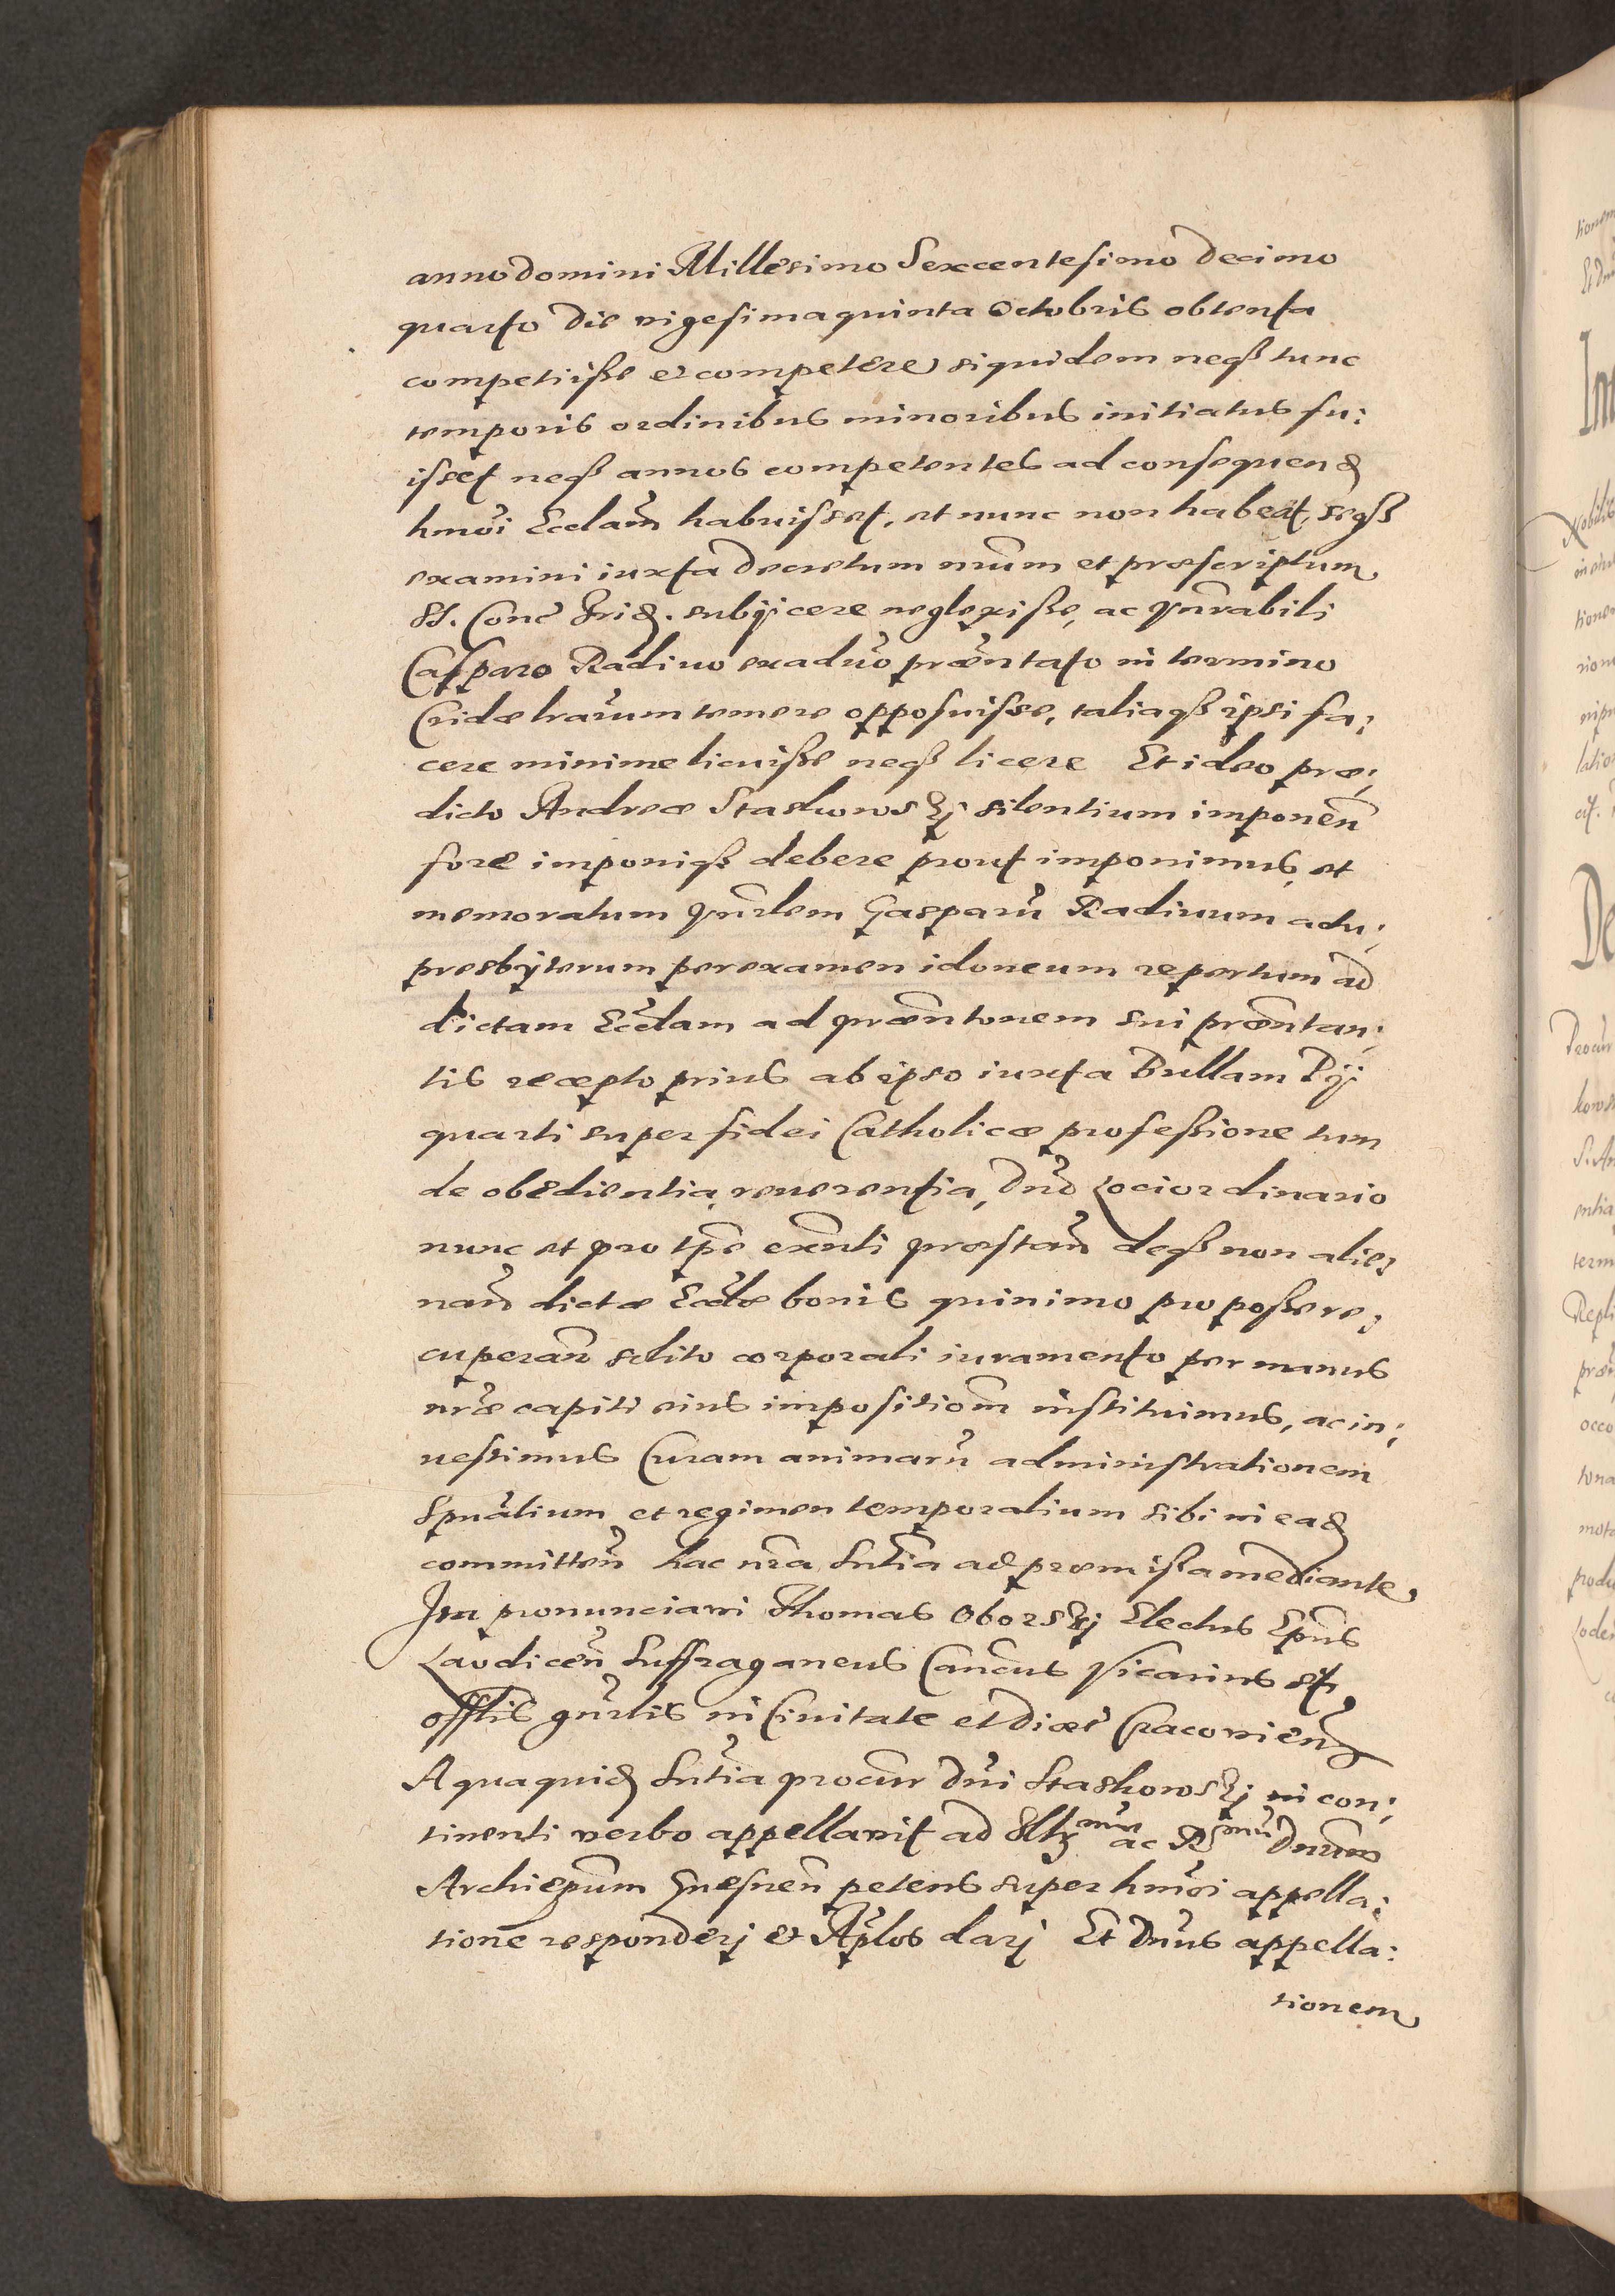 anno domini Millesimo Sexcentesimo decimo
quarto die vigesima quinta Octobris obtenta
competiisse et competere, siquidem neqß tunc
temporis ordinibus minoribus initiatus fu:
isset neqß annos competentes ad consequen
hmoi Ecclam habuisset, et nunc non habeat, seqß
examini iuxta decretum nrum et præscriptum
S. Conc Trid. subijcere neglexisse, ac Vnrabili
Casparo Radivo ex aduo præntato in termino
Cridæ harum temere opposuisse, taliaqß ipsi fa:
cere minime licuisse neqß licere Et ideo præ:
dicto Andreæ Staskowskj silentium imponen
fore imponiqß debere prout imponimus, et
memoratum Vnrlem Gasparu Radiuum adu:
presbyterum per examen idoneum repertum ad
dictam Ecclam ad præntonem sui præntan:
tis recepto prius ab ipso iuxta Bullam Pij
quarti super fidei Catholicæ professione tum
de obedientia, reuerentia, dno Loci ordinario
nunc et pro tpe exenti præstan deqß non alie:
nan dictæ Ecclæ bonis quinimo pro posse re:
cuperan solito corporali iuramento per manus
nræ capiti eius impositiom instituimus, ac in:
uestimus Curam animaru administrationem
Spualium et regimen temporalium sibi in ead
committen hac nra Sntia ad præmissa mediante,
Ita pronunciavi Thomas Oborskj Electus Epus
Laodicen Suffraganeus Cancus Vicarius et
offlis gnrlis in Ciuitate et Diæc Cracovien
A quaquid Sntia procur dni Staskowskj in con:
tinenti verbo appellavit ad Illmum ac Rmum dnum
Archiepum Gnesnen petens super hmoi appella:
tione responderj et Aplos darj Et Dnus appella:
tionem